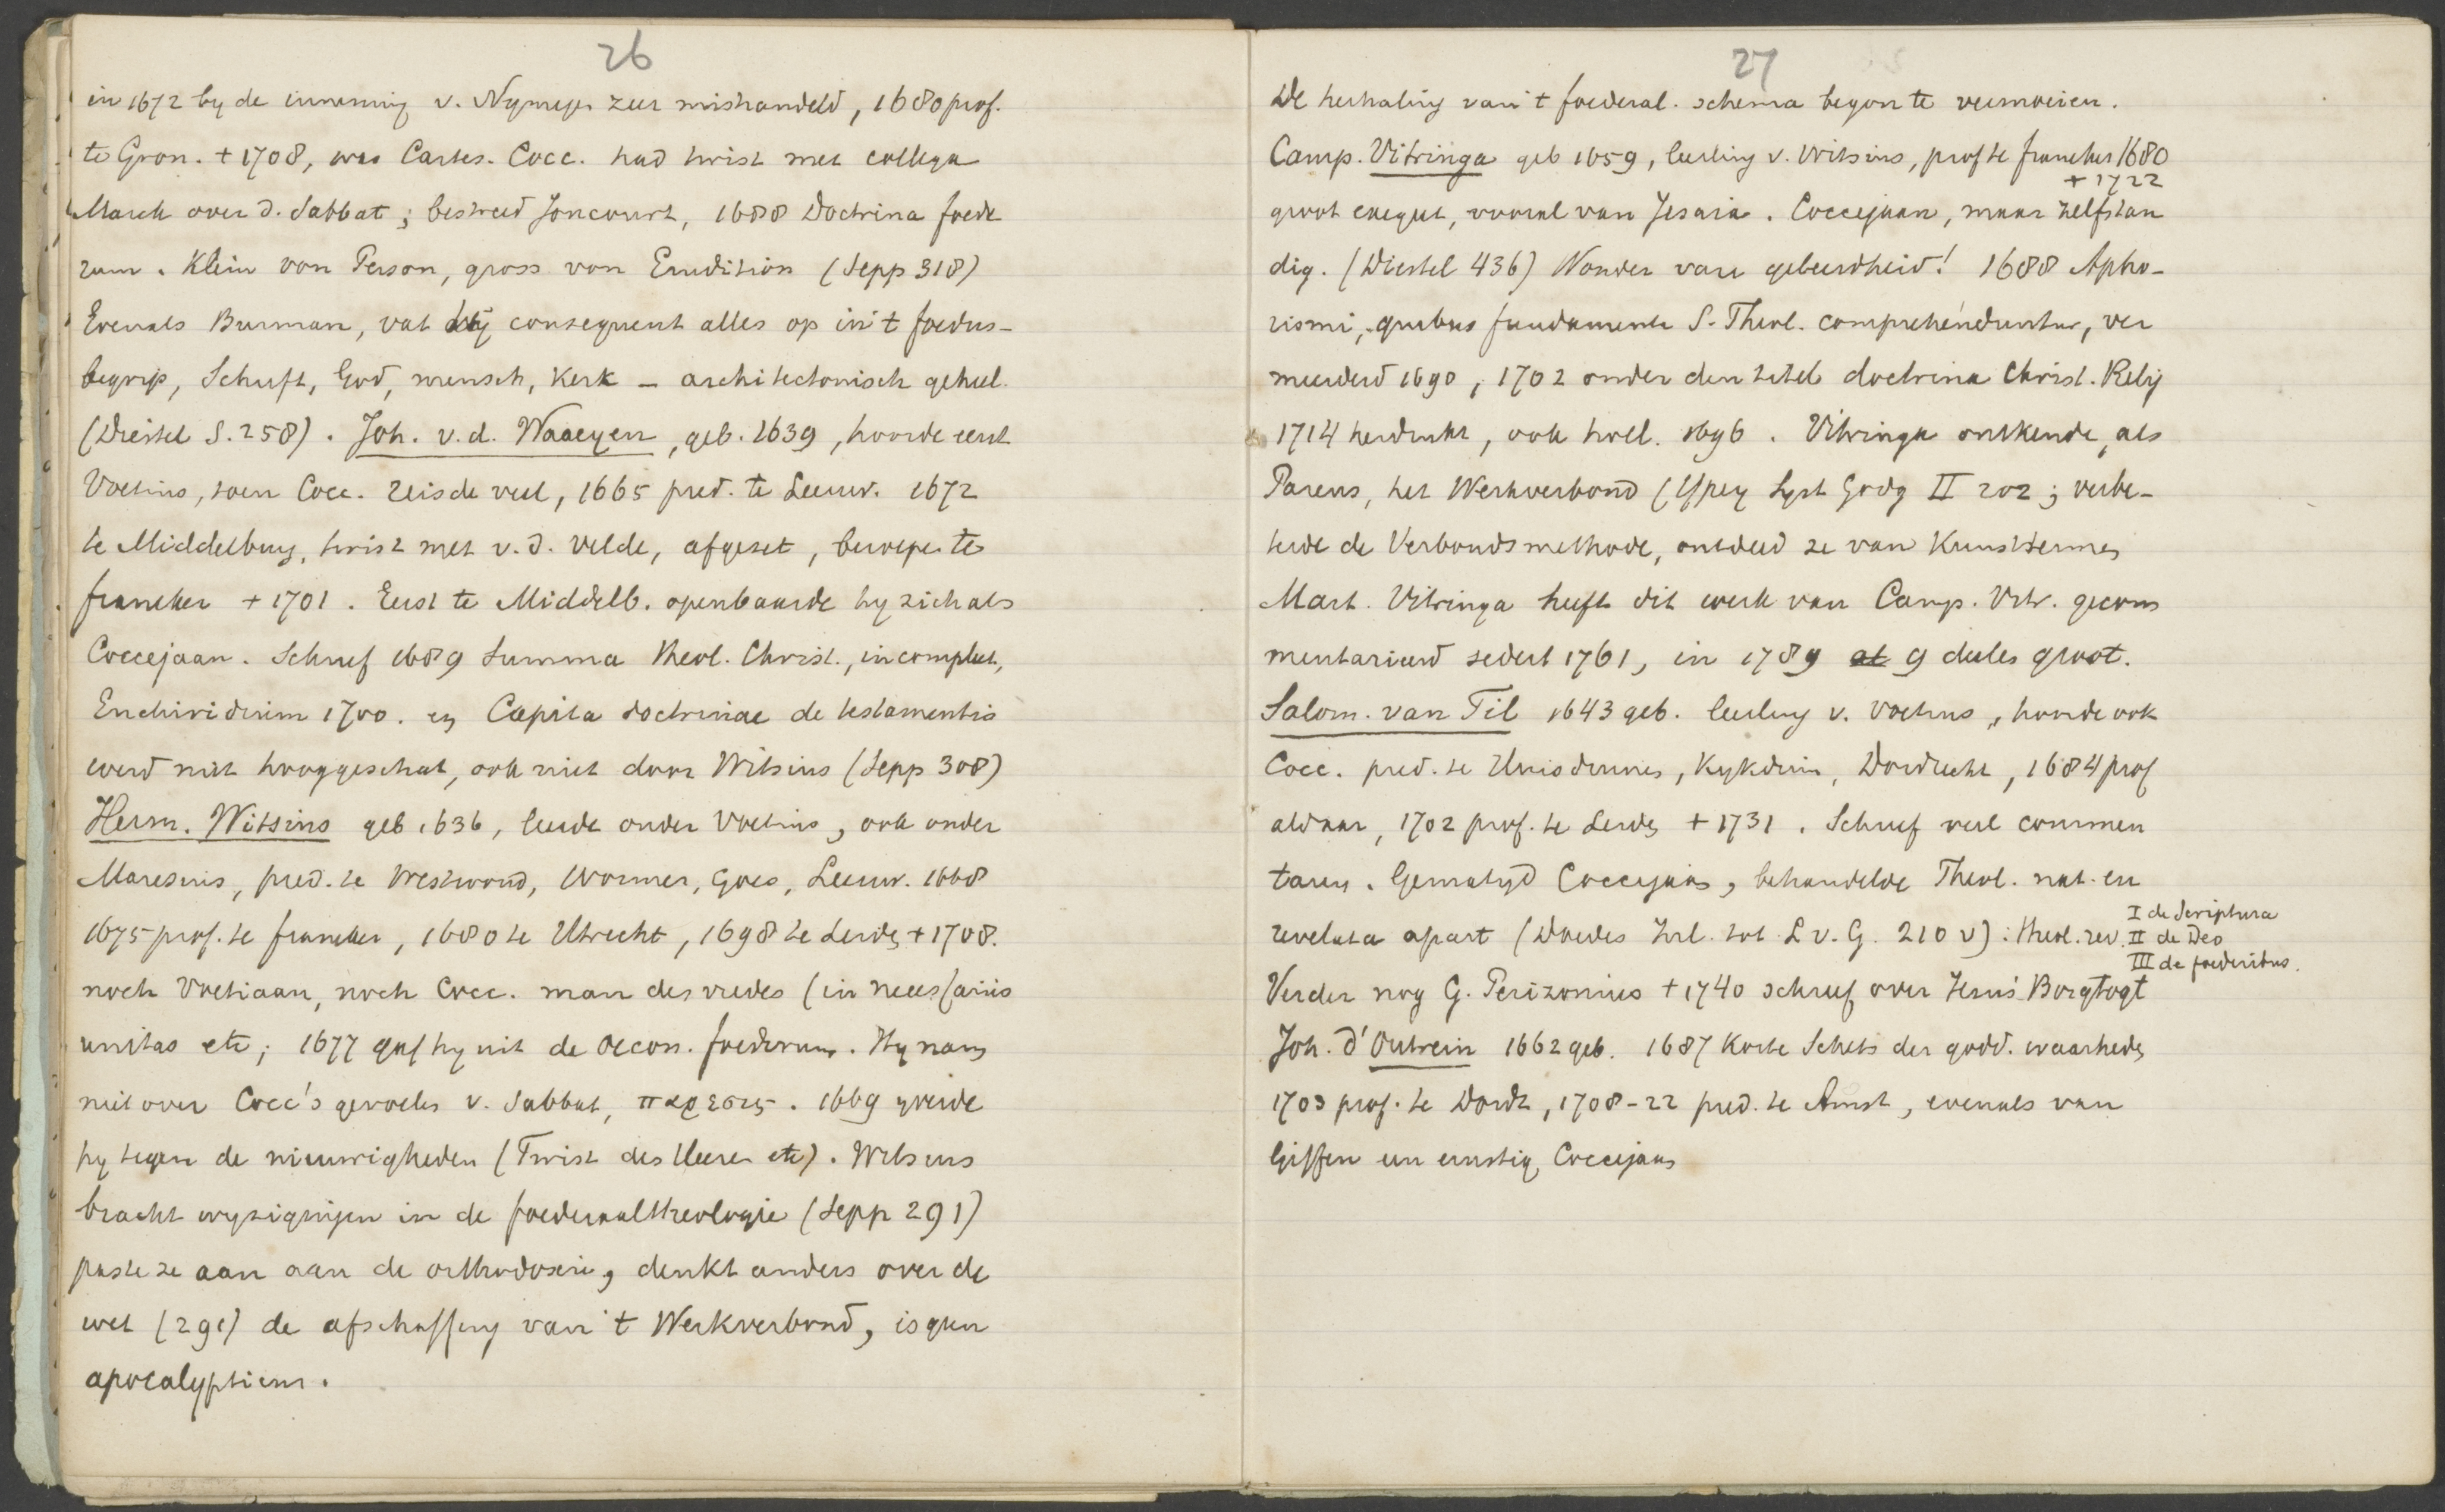 26
in 1672 by de inneming v. Nymegen zeer mishandeld, 1680 prof.
te Gron. + 1708, was Cartes. Cocc. had twist met collega
Marck over d. Sabbat; bestreed Joncourt, 1688 Doctrina foede
rum. Klein von Person, gross von Erudition (Sepp 318)
Evenals Burman, vat hij consequent alles op in 't foedus-
begrip, Schrift, God, mensch, Kerk - architectonisch geheel.
(Diestel S. 258). Joh. v. d. Waaeyen, geb. 1639, hoorde eerst
Voetius, toen Cocc. reisde veel, 1665 pred. te Leeuw. 1672
te Middelburg, twist met v. d. Velde, afgezet, beroepen te
Franeker + 1701. Eerst te Middelb. openbaarde hy zich als
Coccejaan. Schreef 1689 Summa Theol. Christ., incompleet,
Enchiridium 1700. en Capita doctrinae de testamentis
werd niet hooggeschat, ook niet door Witsius (Sepp 308)
Herm. Witsius geb 1636, leerde onder Voetius, ook onder
Maresius, pred. te Westwoud, Wormer, Goes, Leeuw. 1668
1675 prof. te Franeker, 1680 te Utrecht, 1698 te Leiden + 1708.
noch Voetiaan, noch Cocc. man des vredes (in necessariis
unitas etc; 1677 gaf hy uit de Oecon. foederum. Hy nam
niet over Cocc's gevoelen v. Sabbat, παρεσις. 1669 yverde
hy tegen de nieuwigheden (Twist des Heeren etc). Witsius
bracht wyzigingen in de foederaaltheologie (Sepp 291)
paste ze aan aan de orthodoxie, denkt anders over de
wet (291) de afschaffing van 't Werkverbond, is geen
apocalypticus.
27
De herhaling van 't foederal. schema begon te vermoeien.
Camp. Vitringa geb 1659, leerling v. Witsius, prof te Franeker 1680
+ 1722
groot exegeet, vooral van Jesaia. Coccejaan, maar zelfstan
dig. (Diestel 436) Wonder van geleerdheid! 1688 Apho-
rismi, quibus fundamenta S. Theol. comprehenduntur, ver
meerderd 1690, 1702 onder den titel doctrina Christ. Relig
1714 herdrukt, ook holl. 1696. Vitringa ontkende, als
Pareus, het Werkverbond (Ypey Syst Godg II 202; verbe-
terde de Verbondsmethode, ontdeed ze van Kunsttermen
Mart. Vitringa heeft dit werk van Camp. Vitr. gecom
mentarieerd sedert 1761, in 1789 at 9 deelen groot.
Salom. van Til 1643 geb. leerling v. Voetius, hoorde ook
Cocc. pred. te Huisduinen, Kykduin, Dordrecht, 1684 prof
aldaar, 1702 prof. te Leiden + 1731. Schreef veel commen
taren. Gematigd Coccejaan, behandelde Theol. nat. en
revelata apart (Doedes Inl. tot L v. G. 210 v): theol. rev. I de Scriptura
II de Deo
III de foederibus.
Verder nog G. Perizonius + 1740 schreef over Jezus' Borgtogt
Joh. d'Outrein 1662 geb. 1687 Korte Schets der godd. waarheden
1703 prof. te Dordt, 1708-22 pred. te Amst, evenals van
Giffen een ernstig Coccejaan